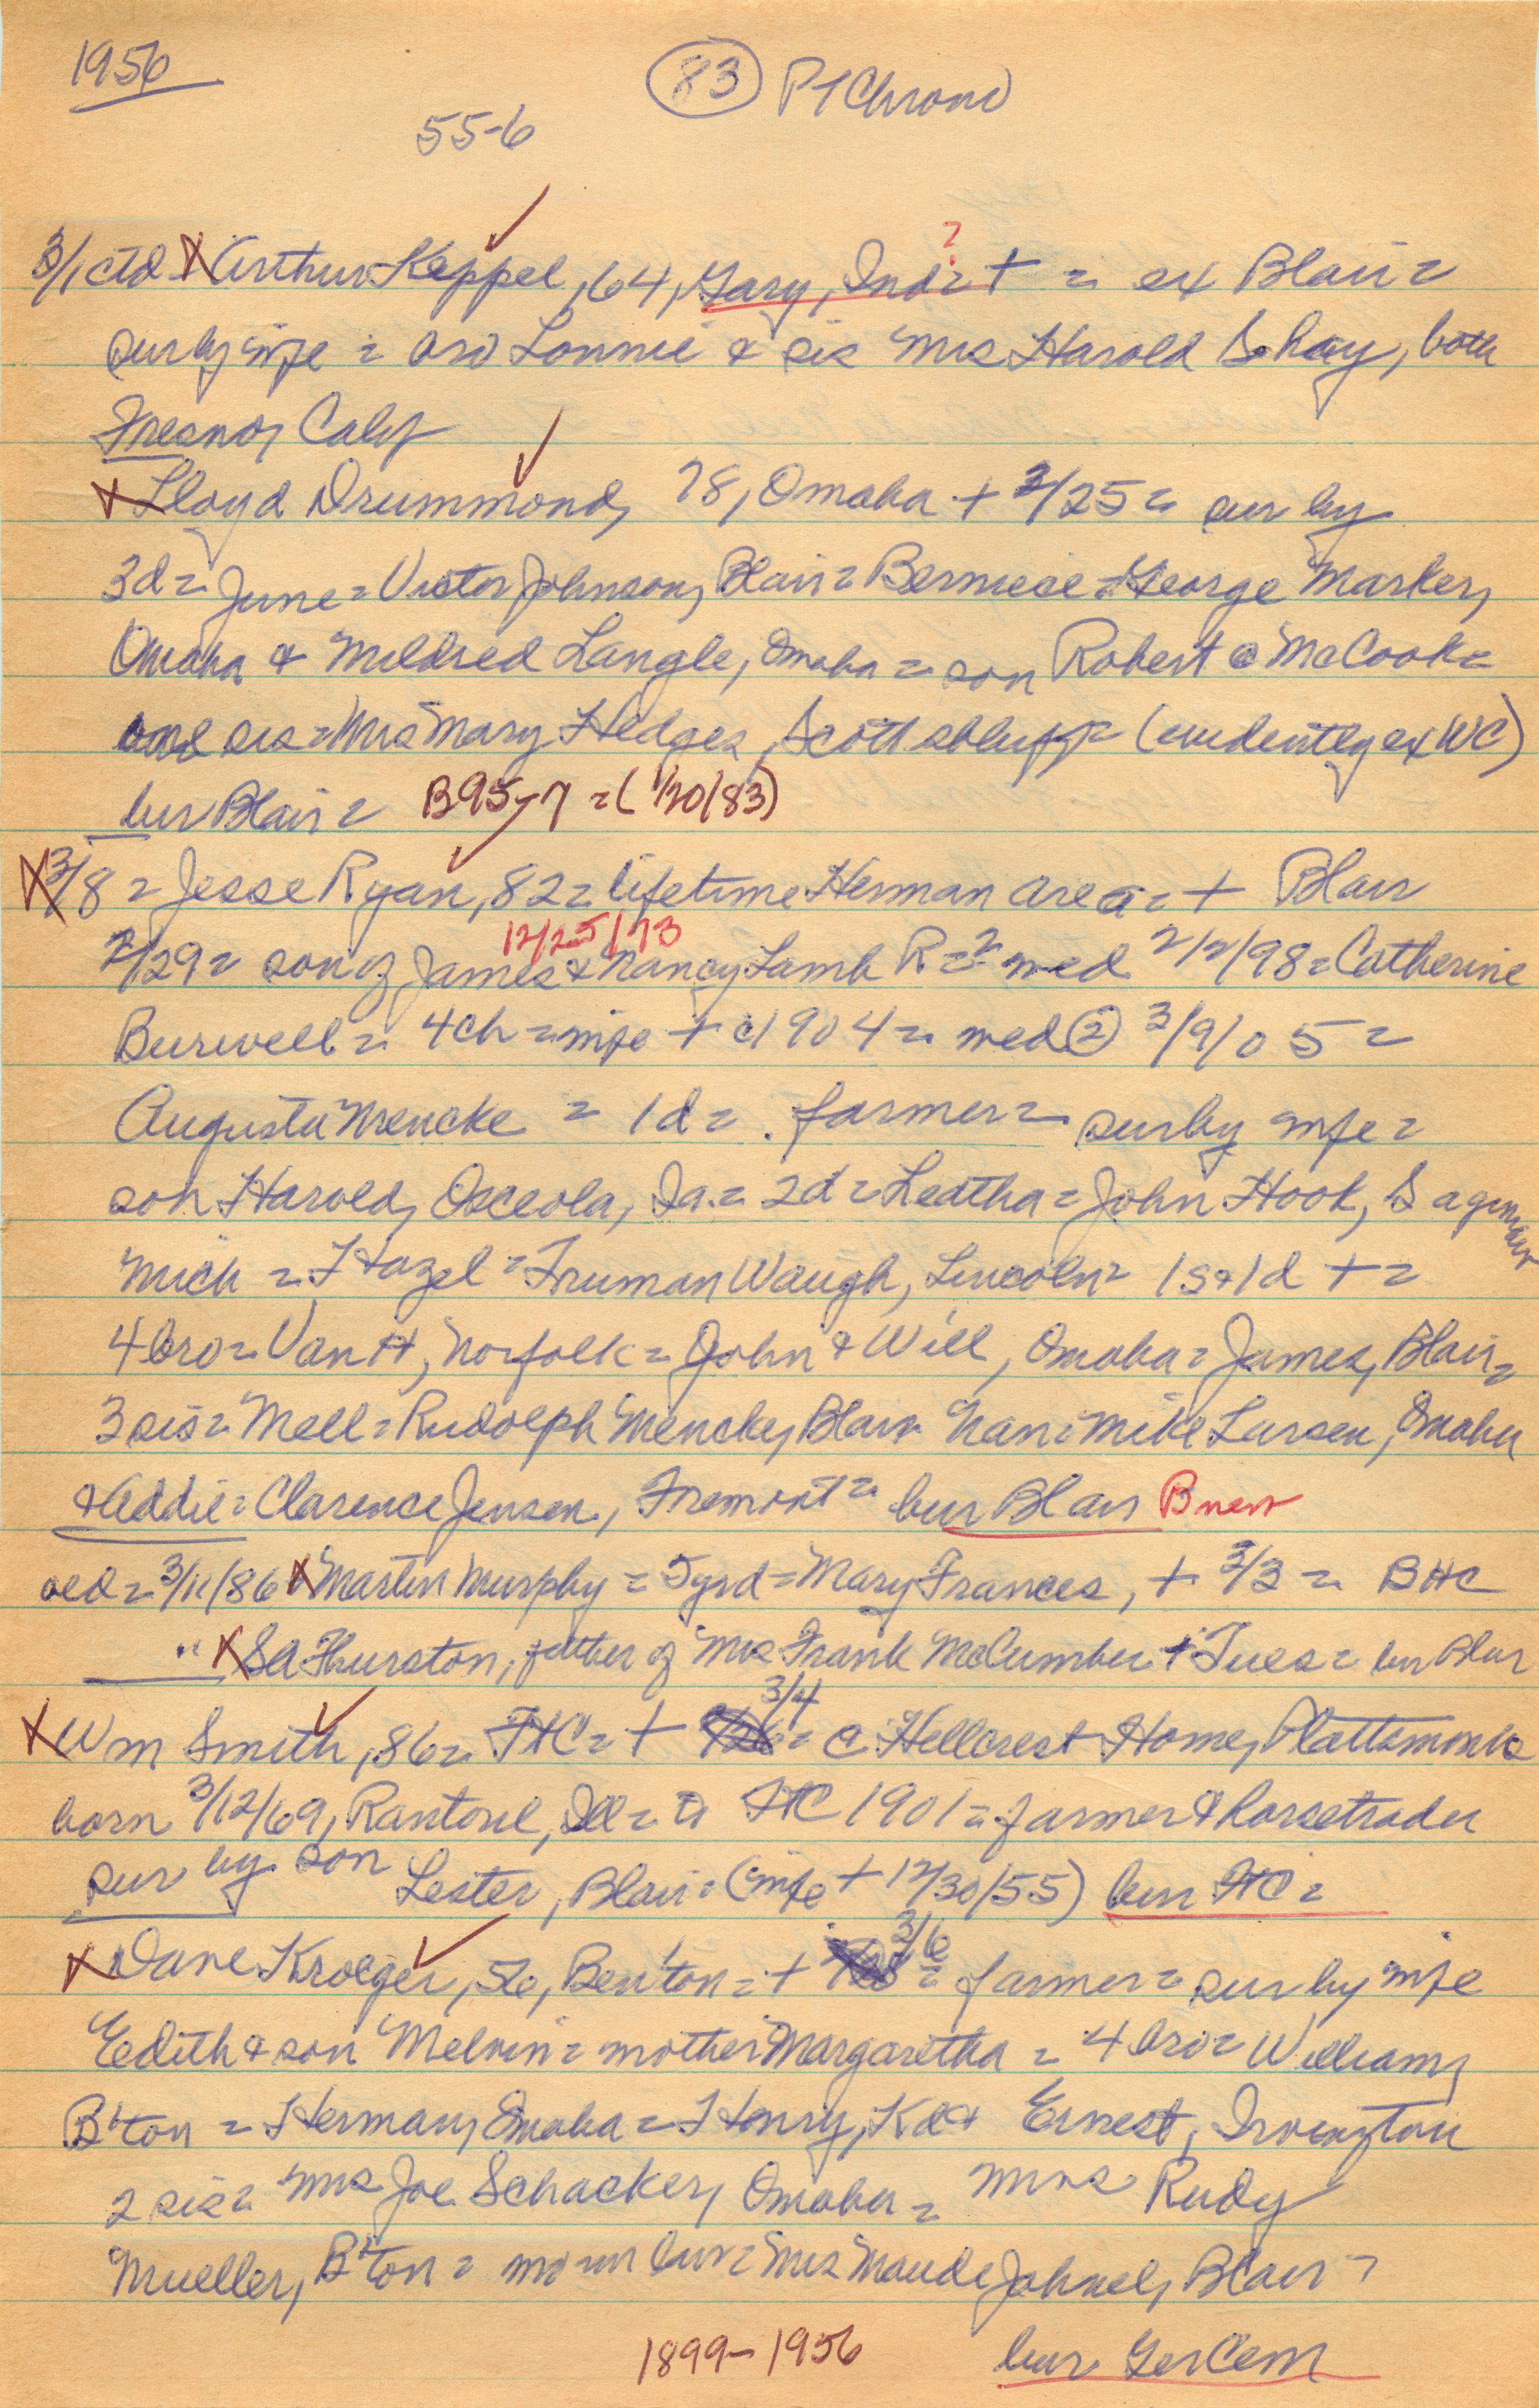 1956
83 Pt Chrono
55-6
3/1 ctd X Arthur Keppel, 64, Gary, Ind = + = ex Blair =
?
sur by wife = bro Lonnie & sis Mrs Harold Shay, both
Fresno, Calif
X Lloyd Drummond, 78, Omaha + 2/25 = sur by
3d = June = Victor Johnson, Blair = Berniece = George Marker,
Omaha & Mildred Langle, Omaha = son Robert @ McCook =
one sis = Mrs Mary Hedges, Scottsbluff = (evidently ex WC)
bur Blair = B95-7 = (1/20/83)
X 3/8 = Jesse Ryan, 82 = lifetime Herman area = + Blair
12/25/73
2/29 = son of James & Nancy Lamb R = ? = med 2/2/98 = Catherine
Burwell = 4ch = wife + c1904 = med ② 3/9/05 =
Augusta Mencke = 1d = farmer = sur by wife =
son Harold, Osceola, Ia. = 2d = Leatha = John Hook, Saginaw
Mich = Hazel = Truman Waugh, Lincoln = 1s & 1d + =
4 bro = Van H, Norfolk = John & Will, Omaha = James, Blair =
3 sis = Mell = Rudolph Mencke, Blair Nan = Mike Larsen, Omaha
& Addie = Clarence Jensen, Fremont = bur Blair B new
oed = 3/11/86 X Martin Murphy = 5 grd = Mary Frances, + 3/3 = BHC
" X SA Thurston, father of Mrs Frank McCumber + Tues = bur Blair
3/4
X Wm Smith, 86 = FtC = + = @ Hillcrest Home, Plattsmouth
born 3/12/69, Rantoul, Ill = a FtC 1901 = farmer & horsetrader
sur by son Lester, Blair = (wife + 12/30/55) bur FtC =
3/6
X Dave Kroeger, 56, Ben'ton = + = farmer = sur by wife
Edith & son Melvin = mother Margaretha = 4 bro = William,
B'ton = Herman, Omaha = Henry, Kd & Ernest, Irvington
2 sis = Mrs Joe Schacker, Omaha = Mrs Rudy
Mueller, B'ton = mo-in law = Mrs Maude Johnel, Blair =
1899-1956 bur Ger Cem